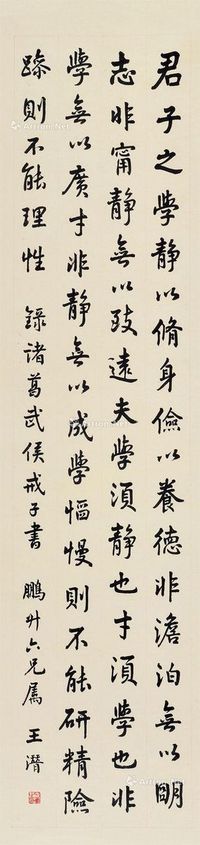 君子之學靜以脩身儉以養德非澹泊無以明
志非甯靜無以致遠夫學須靜也才須學也非
學無以廣才非靜無以成學慆慢則不能研精險
躁則不能理性　錄諸葛武侯戒子書　鵬升六兄屬　王潛